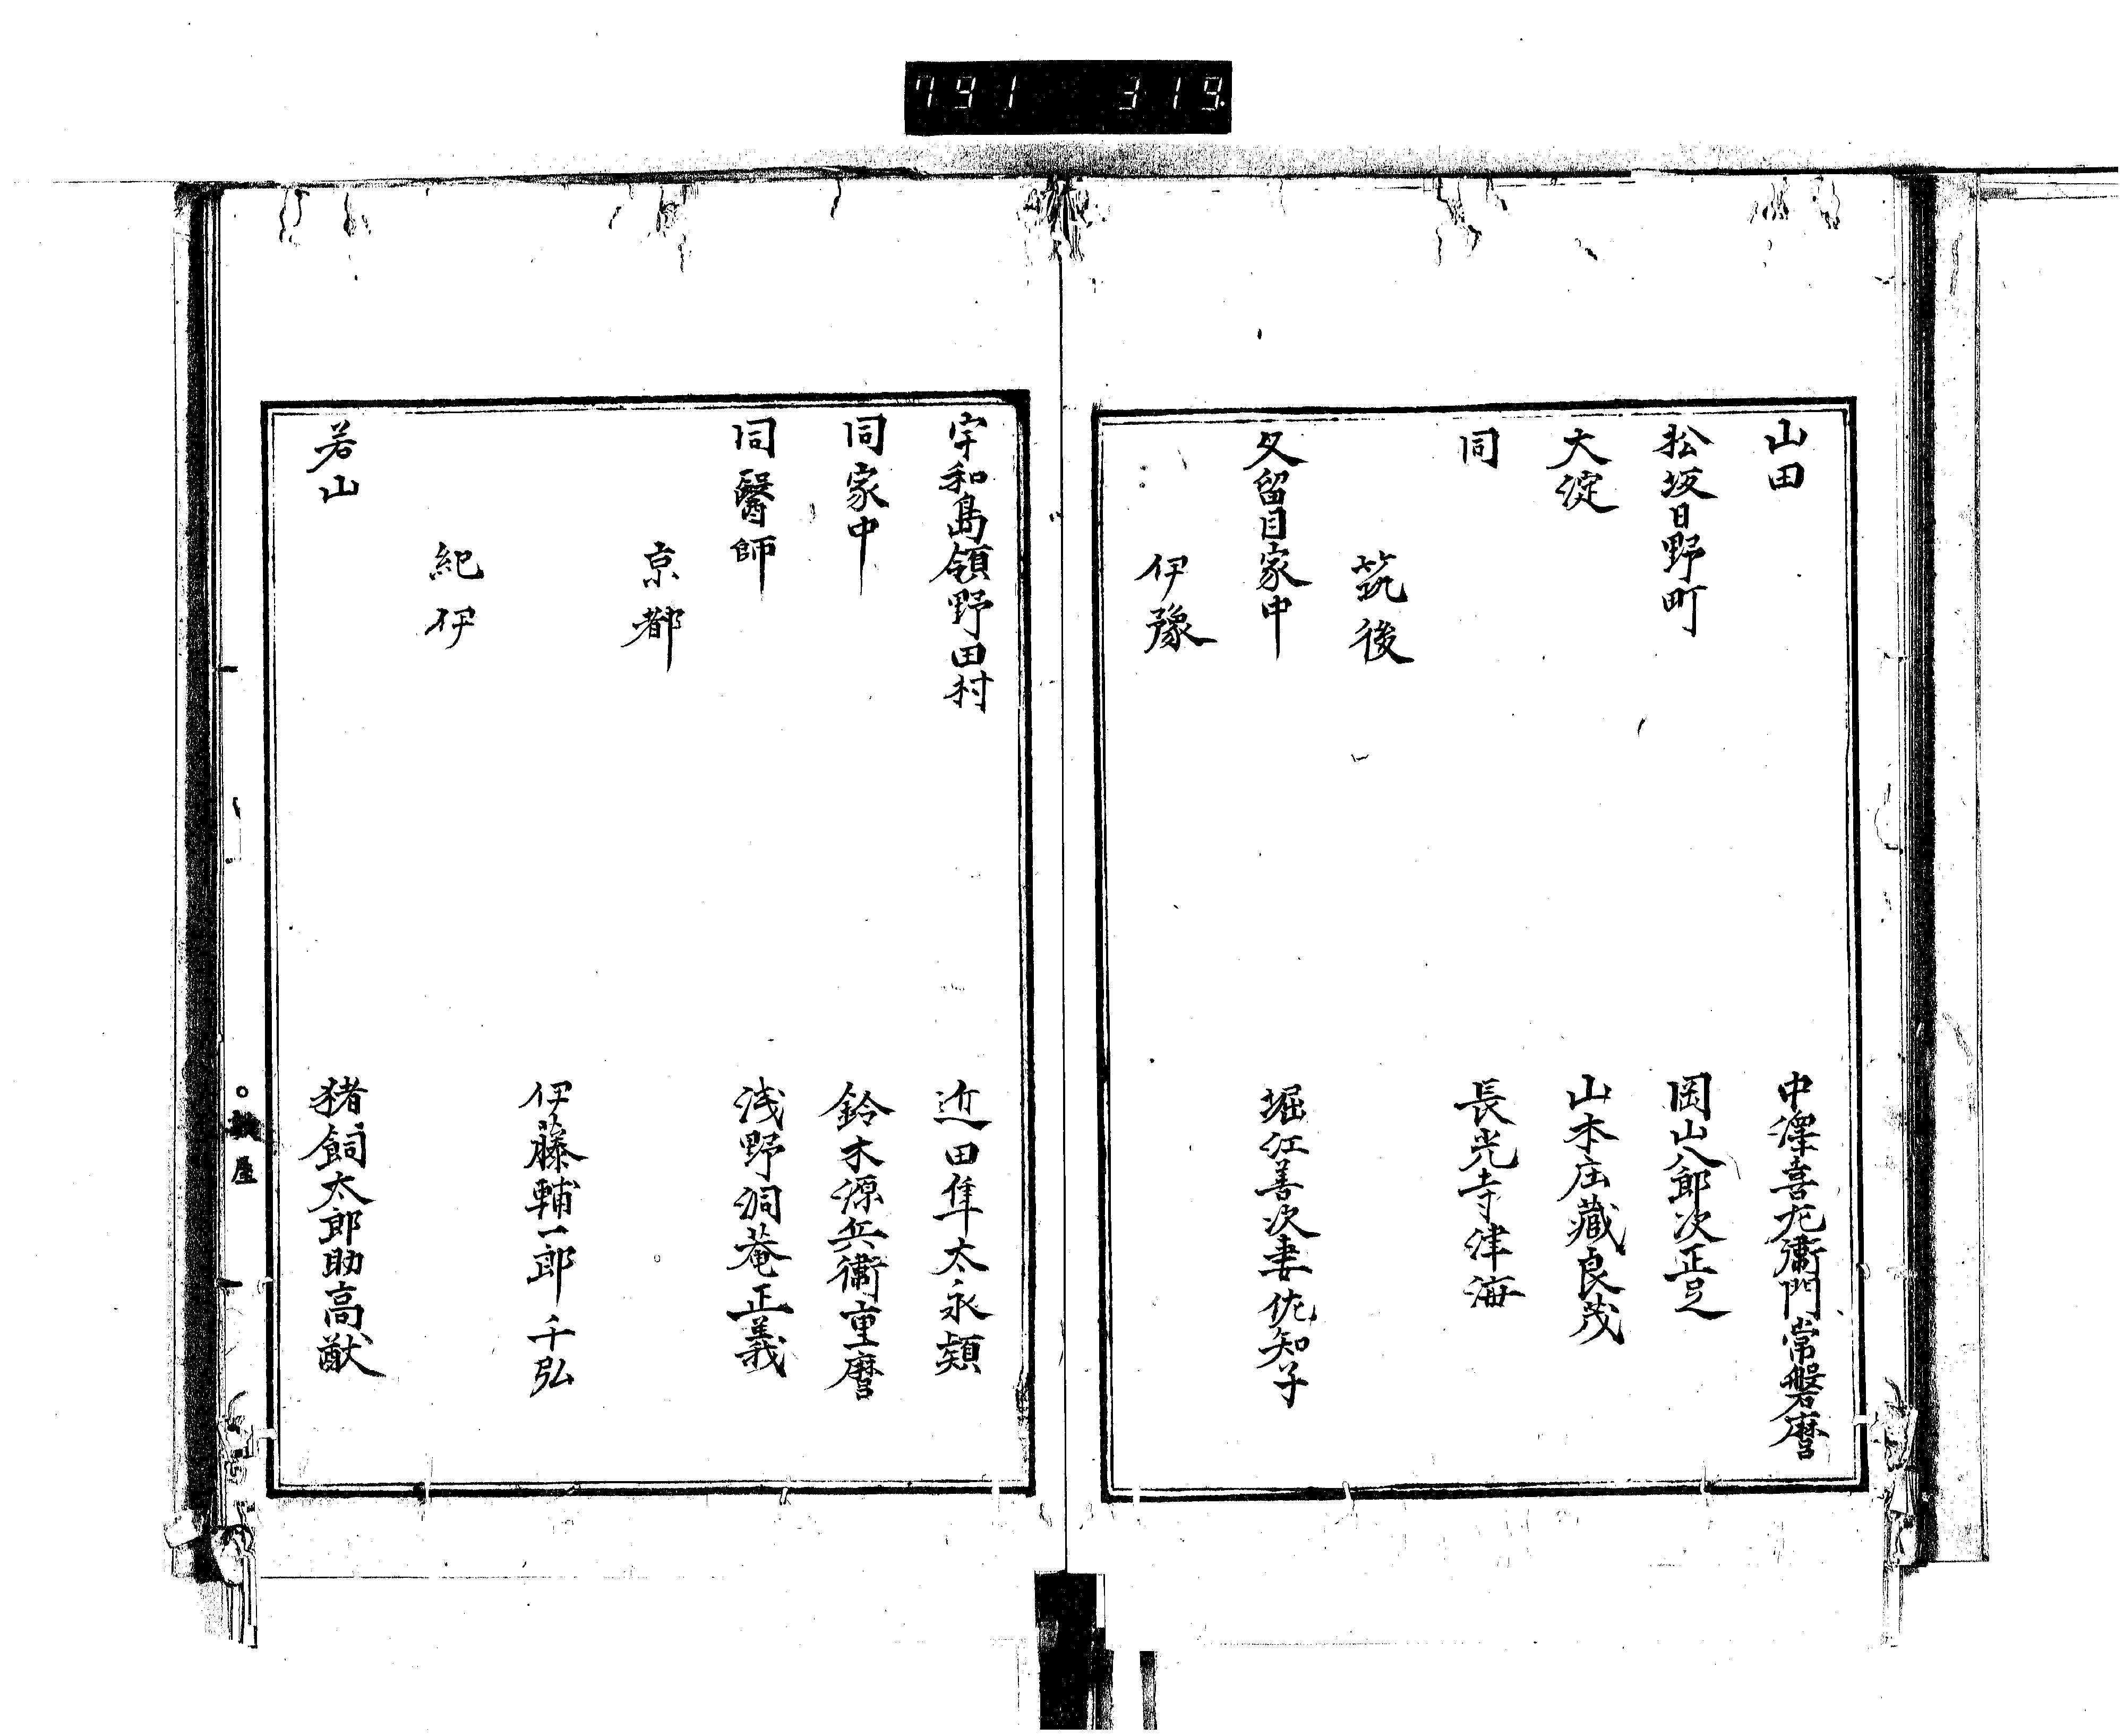 791 319
山田 中澤喜左衛門常磐麿
松坂日野町 岡山八郎次正足
大淀 山本庄藏良茂
同 長光寺津海
筑後
久留目家中 堀江善次妻佐知子
伊豫
宇和島領野田村 近田隼太永頴
同家中 鈴木源兵衛重麿
同醫師 浅野洞菴正義
京都
伊藤輔一郎千弘
紀伊
若山 猪飼太郎助高猷
屋